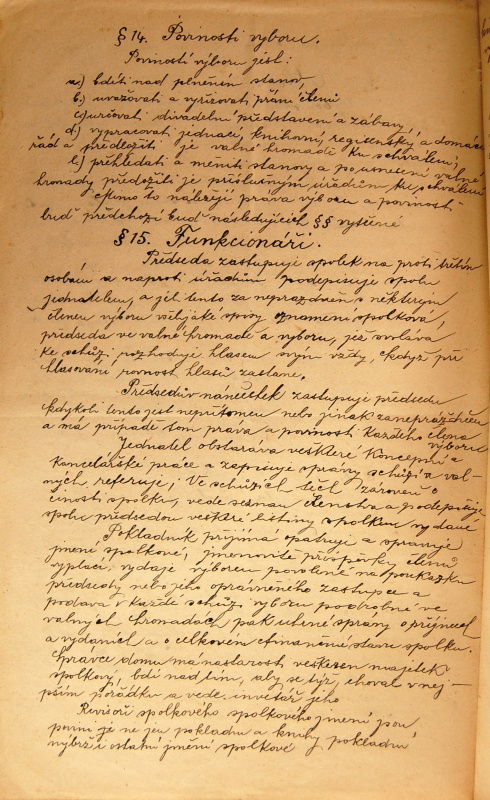 § 14. Povinosti výboru.
Poviností výboru jest:
a.) bdíti nad plněním stanov,
b.) uvažovati a vyřizovati přání členů
c) určovati divadelní představení a zábavy,
d.) vypracovati jednací, knihovní, regisenský, a domácí
řád a předložiti je valné hromadě ku schválení,
e.) přihledati a měniti stanovy a po usnesení valné
hromady předložiti je příslušným úřadům ku schválení
Mimo to náležejí práva výboru a povinosti
buď předchozí buď následujících §§ vytčené
§ 15. Funkcionáři.
Předseda zastupuje spolek na proti třetím
osobám a naproti úřadům podepisuje spolu
jednatelem, a jel tento za neprazdněn s některým
členem výboru veškeré spisy oznamení spolková,
předseda ve valné hromadě a výboru, jež svolává
ke schůzi rozhoduje hlasem svým vždy, když při
hlasovaní rovnost hlasů zastane.
Předsedův náměstek zastupuje předsedu
kdykoli tento jest nepřítomen nebo jinak zaneprázdněn
a má případě tom práva a povinosti každého člena
výboru
Jednatel obstarává veškeré koncepní a
kancelářské práce a zapisuje správy schůzí z val-
ných, referuje, Ve schůzích též zároveň o
činosti spolku, vede seznam členstva a podepisuje
spolu předsedou veškeré listiny spolkem vydané
Pokladník přijímá opatruje a spravuje
jmění spolkové, jmenovitě příspěvky členů
vyplácí, vydaje výborem povolené na poukazku
předsedy nebo jeho oprávněného zastupce a
podává v každé schůzi výboru podrobné ve
valných hromadách pak úhrné správy o příjmech
a vydaních a o celkovém finančné stavu spolku.
Správce domu má na starosti veškeren majetek
spolkový, bdí nad tím, aby se týž, choval v nej-
pším pořádku a vede inventář jeho
Revisoři spolkového spolkového jmení jsou
povini je ne jen pokladnu a knihy pokladní
nýbrž i ostatní jmění spolkové